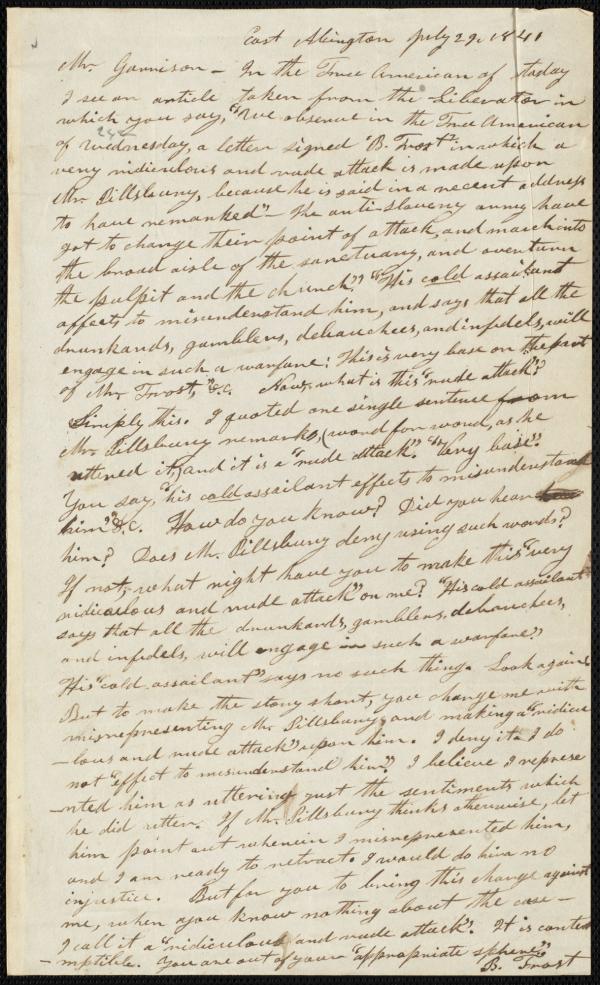 East Abington July 29. 1841
Mr. Garrison – In the True American of today
I see an article taken from the Liberator in
which you say, "We observe in the True American
of Wednesday, a letter signed 'B. Frost' in which a
very ridiculous and rude attack is made upon
Mr. Pillsbury, because he is said in a recent address
to have remarked" – The anti-slavery army have
got to change their point of attack, and march into
the broad aisle of the sanctuary, and overturn
the pulpit and the church" "His cold assailant
affects to misunderstand him, and says that all the
drunkards, gamblers, debauchees, and infidels, will
engage in such a warfare! This is very base on the part
of Mr. Frost," &c. Now, what is this "rude attack"?
Simply this. I quoted one single sentence from
Mr. Pillsbury remarks, (word for word, as he
uttered it) and it is a "rude attack". "Very base".
You say, "his cold assailant effects to misunderstand
him" &c. How do you know? Did you hear
him? Does Mr. Pillsbury deny using such words?
If not, what right have you to make this "very
ridiculous and rude attack" on me? "His cold assailant
says that all the drunkards, gamblers, debauchees,
and infidels, will engage in such a warfare"
His "cold assailant" says no such thing. Look again.
But to make the story short, you charge me with
misrepresenting Mr. Pillsbury, and making a "ridicu
–lous and rude attack" upon him. I deny it. I do
not "effect to misunderstand him". I believe I represe
–nted him as uttering just the sentiments which
he did utter. If Mr. Pillsbury thinks otherwise, let
him point out wherein I misrepresented him,
and I am ready to retract. I would do him no
injustice. But for you to bring this charge against
me, when you know nothing about the case –
I call it a "ridiculous and rude attack". It is conte
–mptible. You are out of your "appropriate sphere"
B. Frost